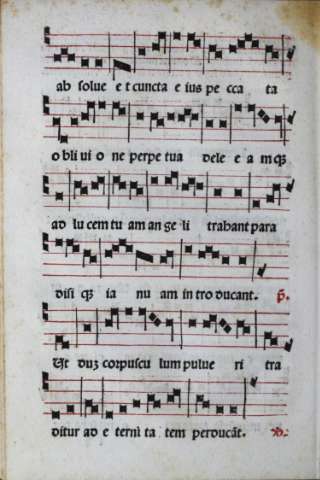 ab solue e t cuncta e ius pe cca ta
o bli ui o ne perpe tua dele e a mqȝ
ad lu cem tu am an ge li trahant para
disi qȝ ia nu am in tro ducant. p̄.
Ut duȝ corpuscu lum pulue ri tra
ditur ad e terni ta tem perducāt.